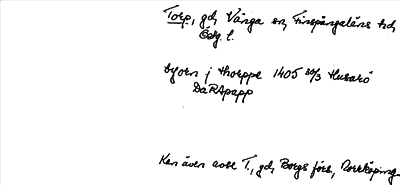 Torp, gd, Vånga sn, Finspångaläns hd,
Ög. l.
byorn j thorppe 1405 20/3 Husarö
DaRApapp
Kan även avse T., gd, Borgs förs., Norrköping